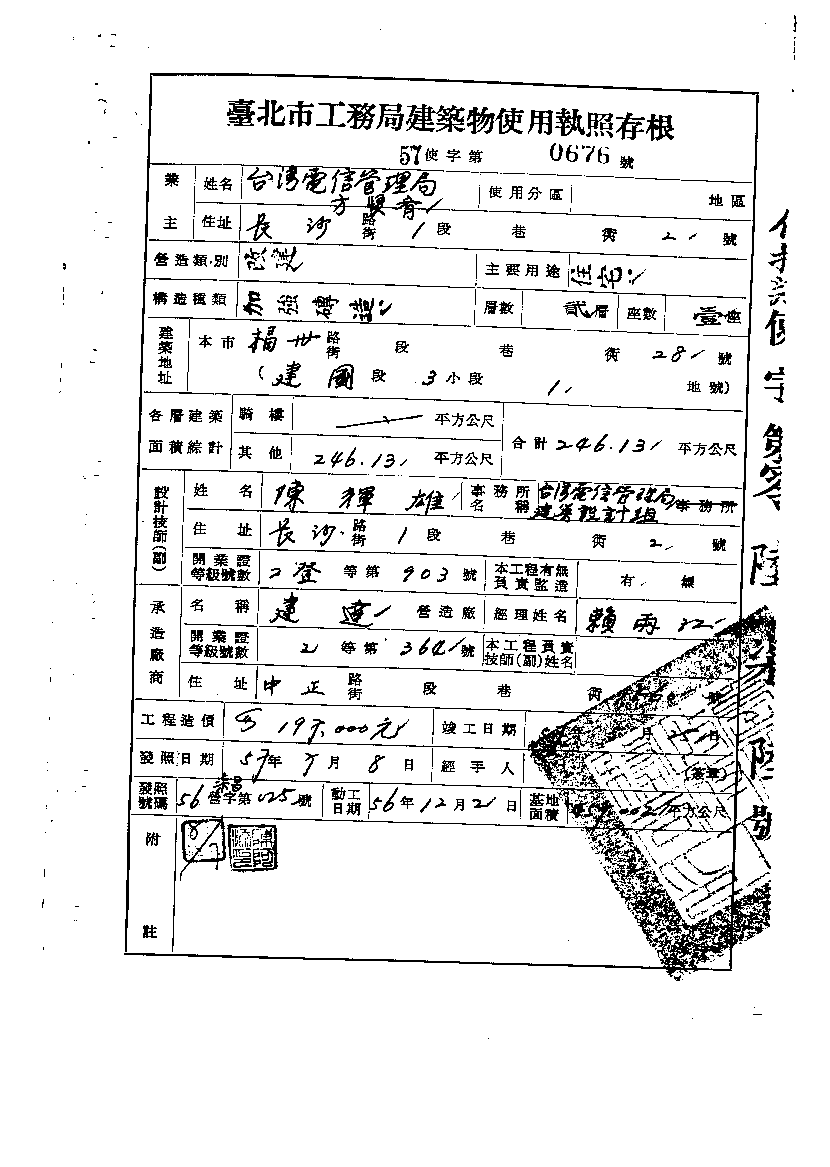 臺北市工務局建築物使用執照存根
57使字第 0676 號
業主 姓名 台湾電信管理局 方賢齊 使用分區 地區
住址 長沙 路街 1 段 巷 衖 2 號
營造類別 改建 主要用途 住宅
構造種類 加強磚造 層數 貳層 座數 壹座
建築地址 本市 楊州 路街 段 巷 衖 28 號
(建國 段 3 小段 1 地號)
各層建築面積綜計 騎樓 平方公尺
其他 246.13 平方公尺 合計 246.13 平方公尺
設計技師(副) 姓名 陳輝雄 事務所名稱 台湾電信管理局建築設計組 事務所
住址 長沙 路街 1 段 巷 衖 2 號
開業證等級號數 工登 等第 903 號 本工程有無負責監造 有 無
承造廠商 名稱 建達 營造廠 經理姓名 賴雨
開業證等級號數 等第 364 號 本工程負責技師(副)姓名
住址 中正 路街 段 巷 衖
工程造價 000元 竣工日期 月 日
發照日期 57年 月 8 日 經手人 (蓋章)
發照號碼 56 營字第 025 號 動工日期 56年12月21日 基地面積 平方公尺
附註
使字第零陸柒陸號